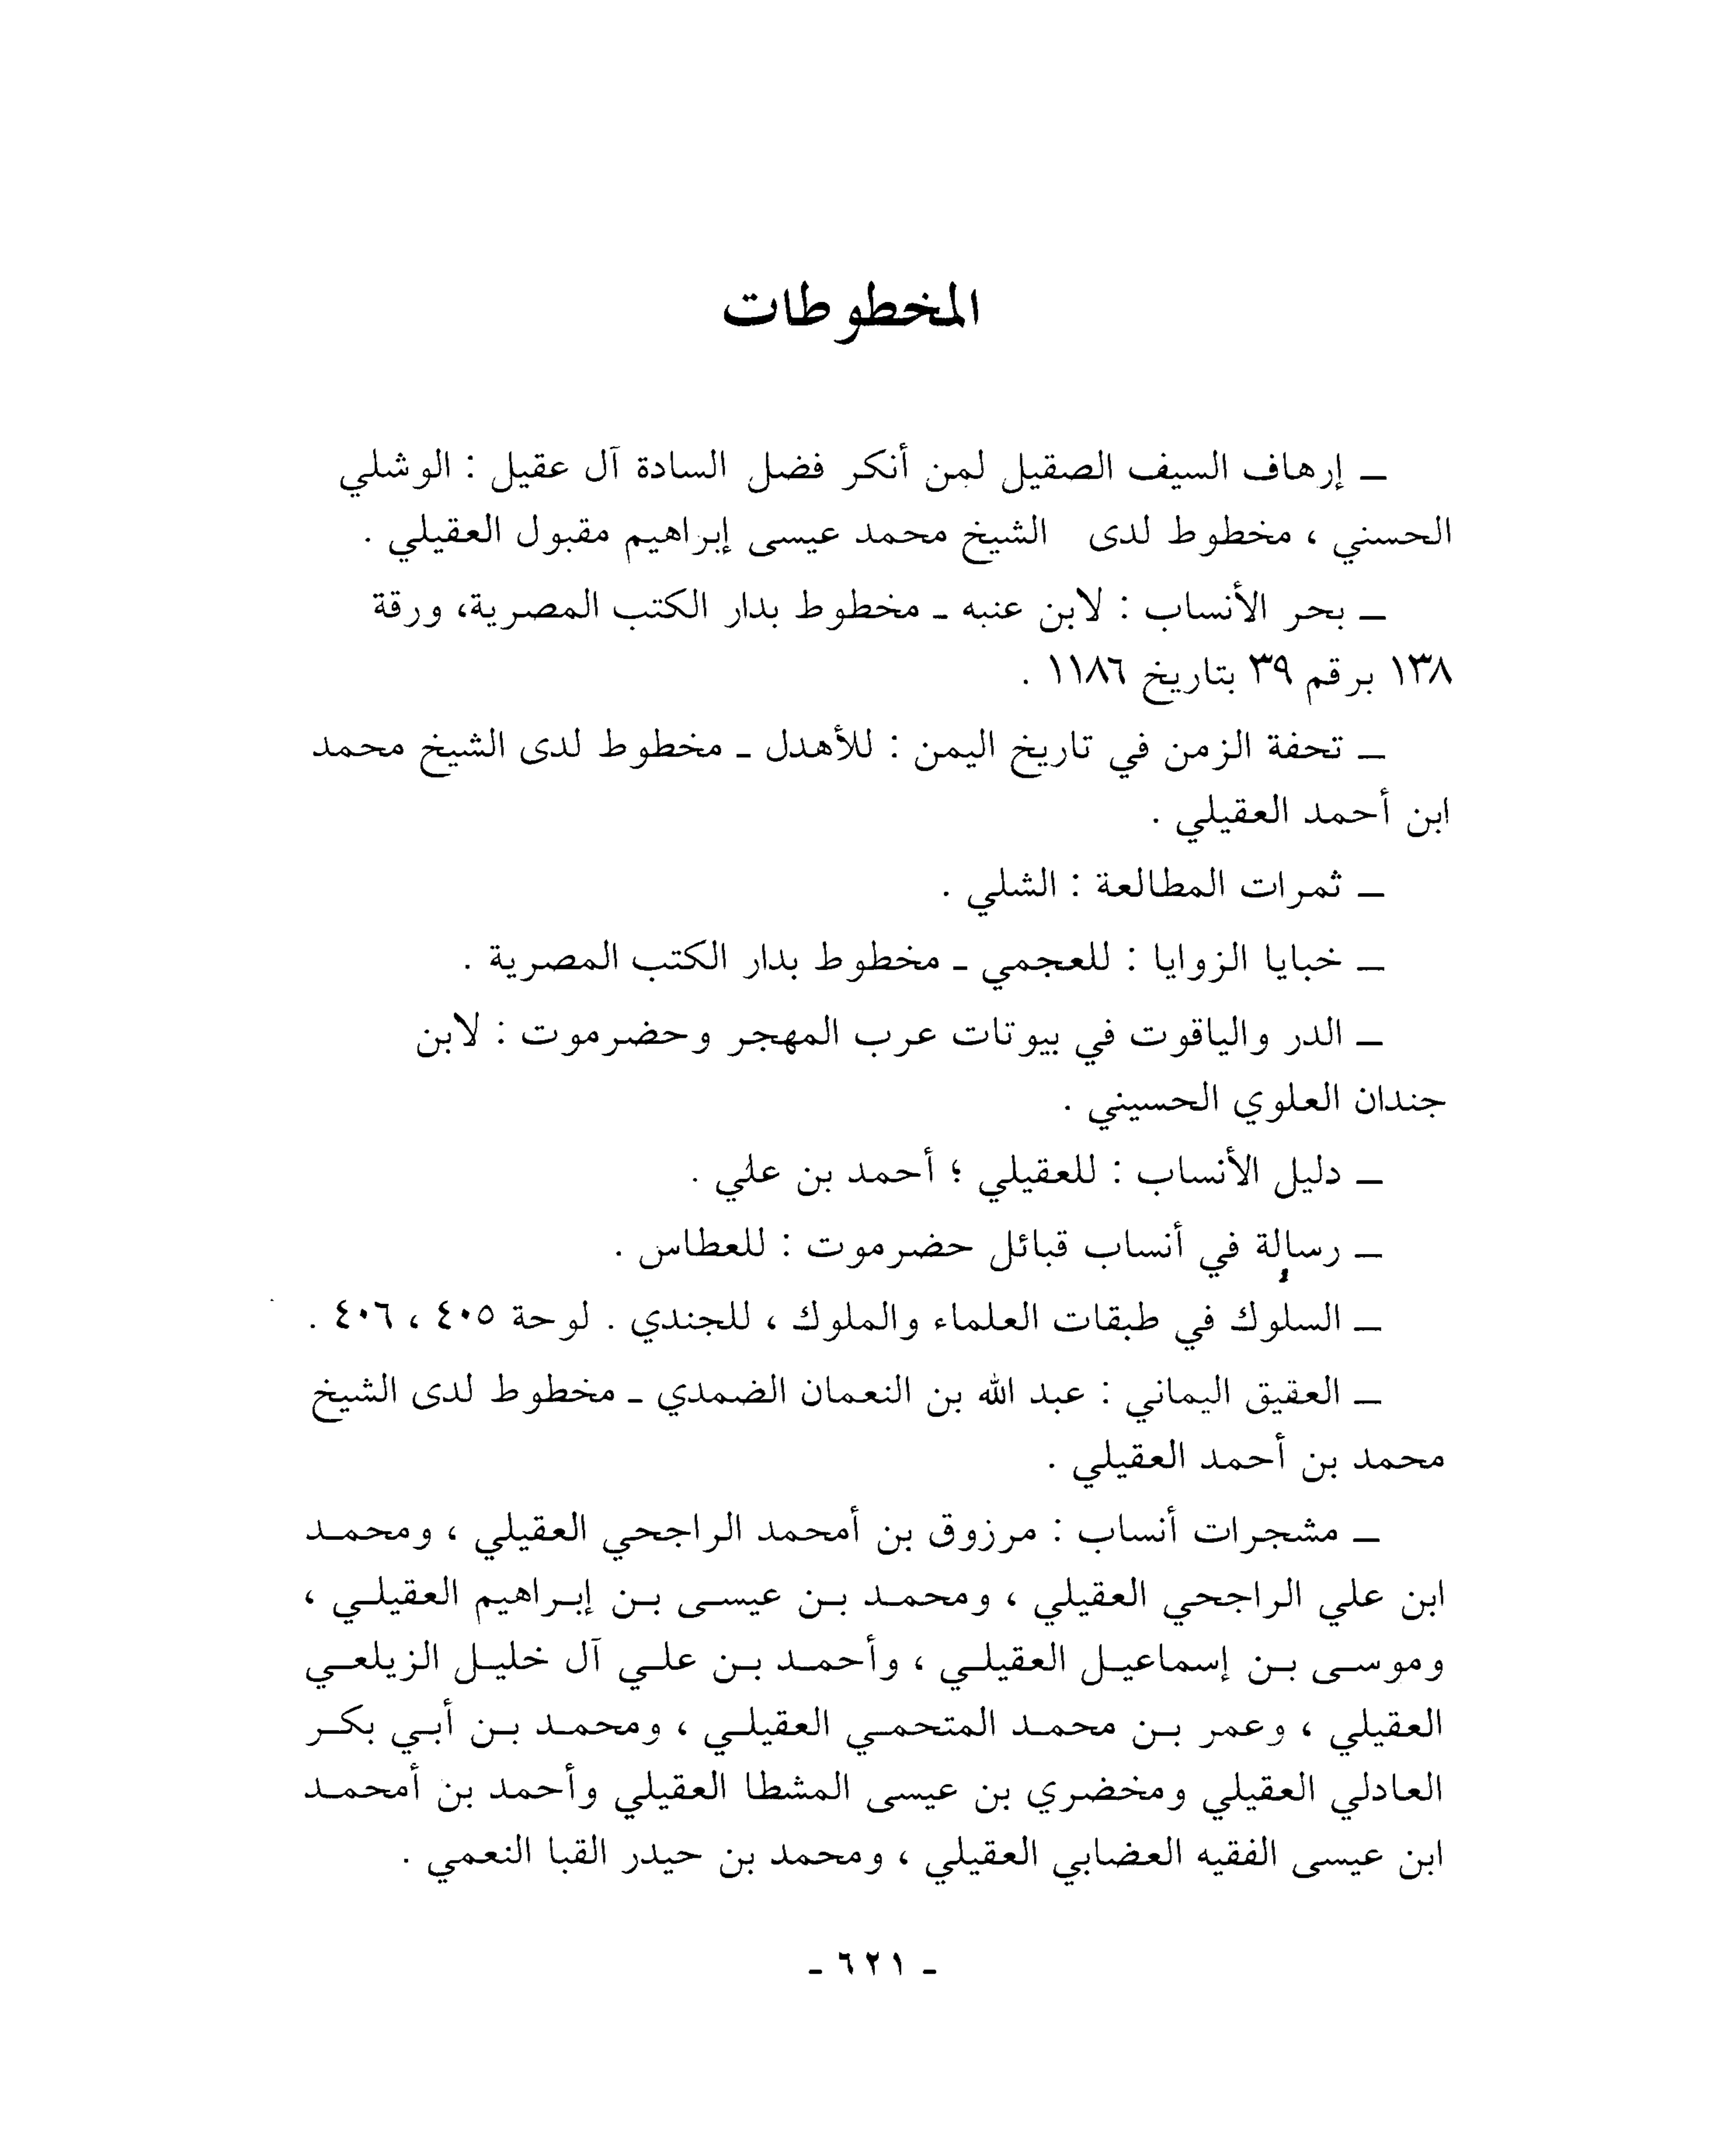 المخطوطات
ــ إرهاف السيف الصقيل لمن أنكر فضل السادة آل عقيل : الوشلي
الحسني ، مخطوط لدى الشيخ محمد عيسى إبراهيم مقبول العقيلي .
ــ بحر الأنساب : لابن عنبه ـ مخطوط بدار الكتب المصرية، ورقة
١٣٨ برقم ٣٩ بتاريخ ١١٨٦ .
ــ تحفة الزمن في تاريخ اليمن : للأهدل ـ مخطوط لدى الشيخ محمد
ابن أحمد العقيلي .
ــ ثمرات المطالعة : الشلي .
ــ خبايا الزوايا : للعجمي ـ مخطوط بدار الكتب المصرية .
ــ الدر والياقوت في بيوتات عرب المهجر وحضرموت : لابن
جندان العلوي الحسيني .
ــ دليل الأنساب : للعقيلي ؛ أحمد بن علي .
ــ رسالة في أنساب قبائل حضرموت : للعطاس .
ــ السلوك في طبقات العلماء والملوك ، للجندي . لوحة ٤٠٥ ، ٤٠٦ .
ــ العقيق اليماني : عبد الله بن النعمان الضمدي ـ مخطوط لدى الشيخ
محمد بن أحمد العقيلي .
ــ مشجرات أنساب : مرزوق بن أمحمد الراجحي العقيلي ، ومحمد
ابن علي الراجحي العقيلي ، ومحمد بن عيسى بن إبراهيم العقيلي ،
وموسى بن إسماعيل العقيلي ، وأحمد بن علي آل خليل الزيلعي
العقيلي ، وعمر بن محمد المتحمي العقيلي ، ومحمد بن أبي بكر
العادلي العقيلي ومخضري بن عيسى المشطا العقيلي وأحمد بن أمحمد
ابن عيسى الفقيه العضابي العقيلي ، ومحمد بن حيدر القبا النعمي .
ـ ٦٢١ ـ